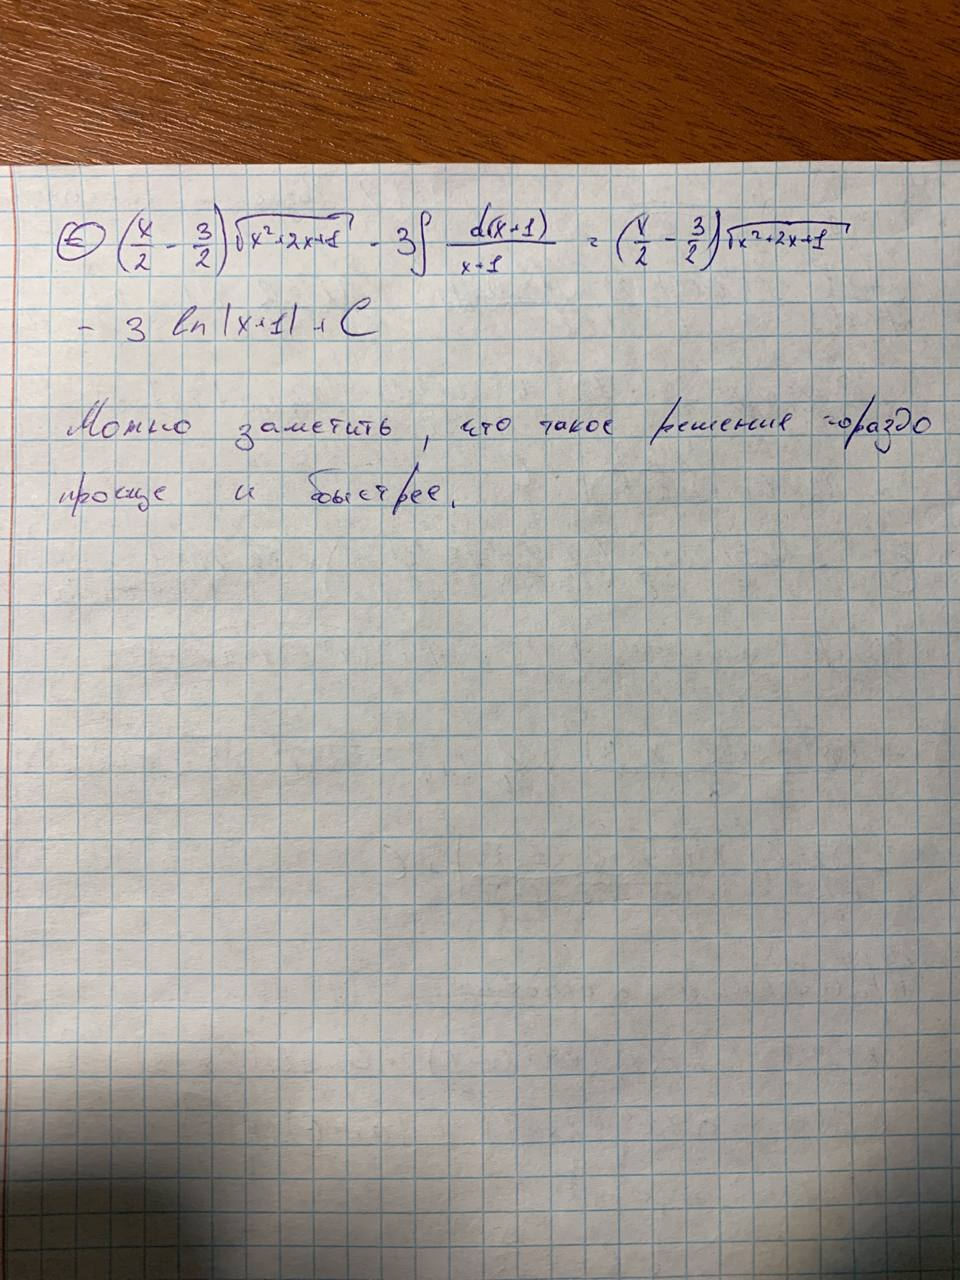 ⊜ (x/2 - 3/2)√(x²+2x+1) - 3∫ d(x+1)/(x+1) = (x/2 - 3/2)√(x²+2x+1)
- 3 ln|x+1| + C
Можно заметить, что такое решение гораздо
проще и быстрее.